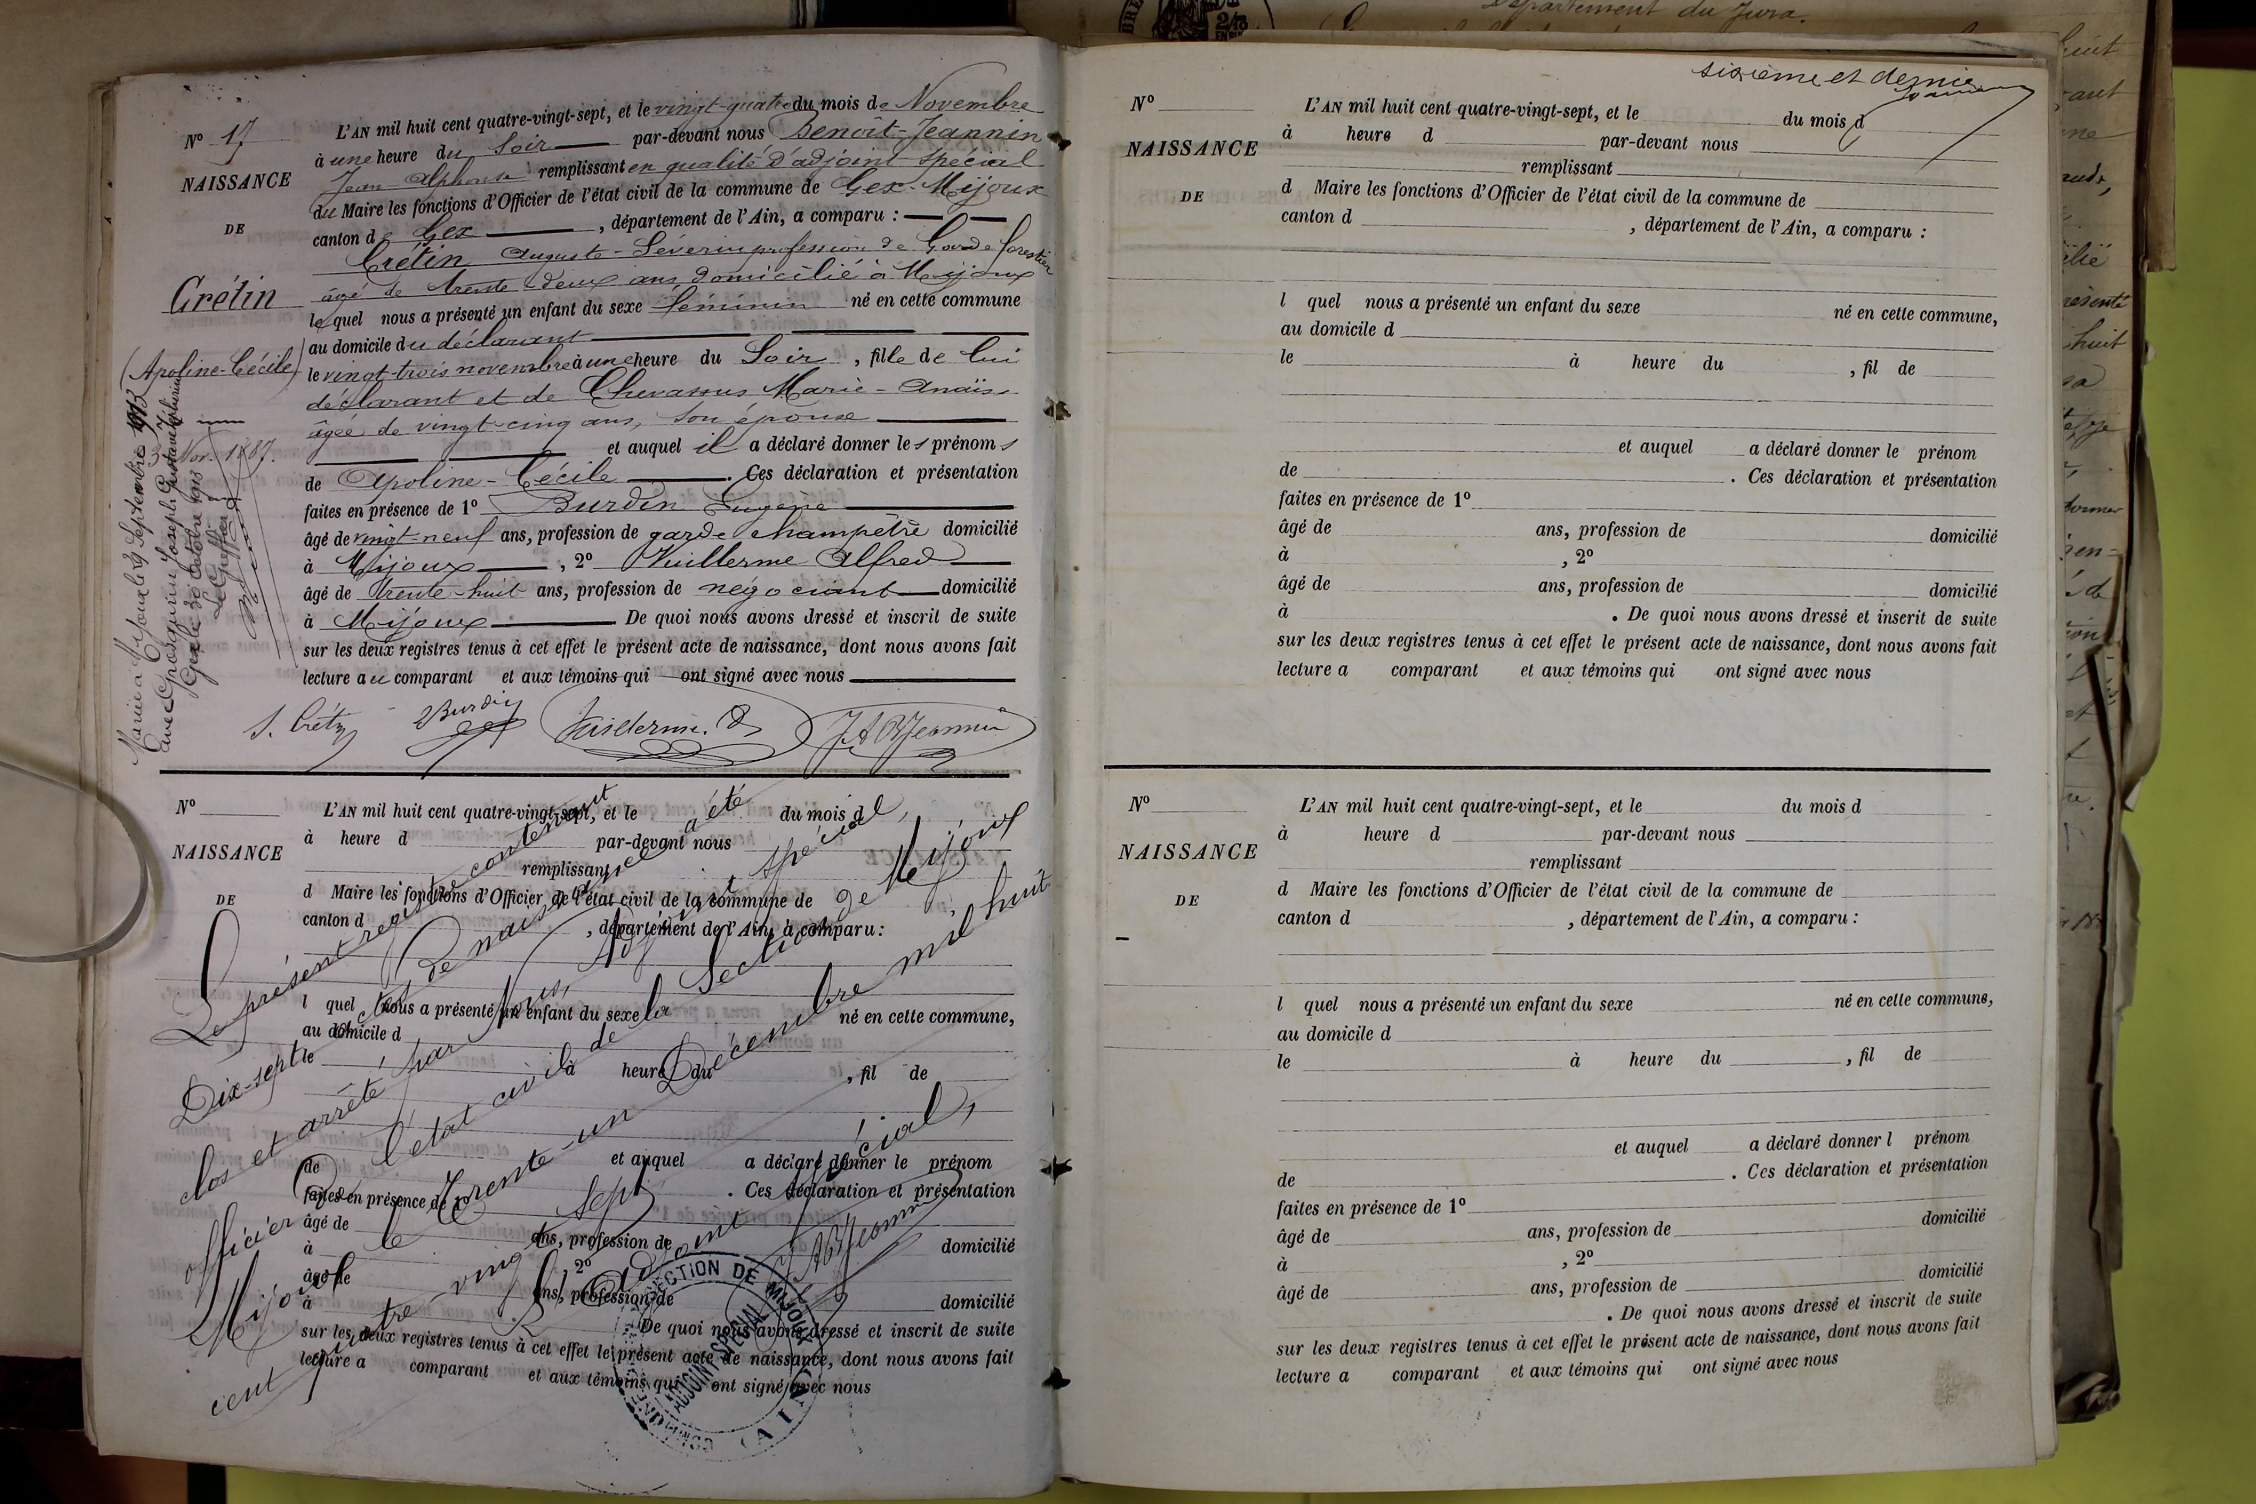 Département du Jura.
Nº 17
NAISSANCE
DE
Crétin
(Apoline-Cécile)
Nov. 1887.
Mariée à Mijoux le 27 Septembre 1913
avec Grosgurin Joseph Gustave
Gex le 30 octobre 1913
Le Greffier
L'AN mil huit cent quatre-vingt-sept, et le vingt-quatre du mois de Novembre
à une heure du Soir par-devant nous Benoît-Jeannin
Jean Alphonse remplissant en qualité d'adjoint spécial
du Maire les fonctions d'Officier de l'état civil de la commune de Gex-Mijoux
canton de Gex, département de l'Ain, a comparu :
Crétin Auguste-Séverin profession de Garde forestier
âgé de trente deux ans, domicilié à Mijoux
lequel nous a présenté un enfant du sexe féminin né en cette commune
au domicile du déclarant
le vingt-trois novembre à une heure du Soir, fille de lui
déclarant et de Chevassus Marie-Anaïs
âgée de vingt-cinq ans, son épouse
et auquel il a déclaré donner les prénoms
de Apoline-Cécile. Ces déclaration et présentation
faites en présence de 1º Burdin Eugène
âgé de vingt-neuf ans, profession de garde champêtre domicilié
à Mijoux, 2º Vuillerme Alfred
âgé de trente-huit ans, profession de négociant domicilié
à Mijoux De quoi nous avons dressé et inscrit de suite
sur les deux registres tenus à cet effet le présent acte de naissance, dont nous avons fait
lecture au comparant et aux témoins qui ont signé avec nous
S. Crétin Burdin Vuillerme. A JABJeannin
Nº
NAISSANCE
DE
L'AN mil huit cent quatre-vingt-sept, et le du mois d
à heure d par-devant nous
remplissant
d Maire les fonctions d'Officier de l'état civil de la commune de
canton d , département de l'Ain, a comparu :
l quel nous a présenté un enfant du sexe né en cette commune,
au domicile d
le à heure du , fil de
et auquel a déclaré donner le prénom
de . Ces déclaration et présentation
faites en présence de 1º
âgé de ans, profession de domicilié
à , 2º
âgé de ans, profession de domicilié
à . De quoi nous avons dressé et inscrit de suite
sur les deux registres tenus à cet effet le présent acte de naissance, dont nous avons fait
lecture a comparant et aux témoins qui ont signé avec nous
Le présent registre contenant
Dix-sept actes de naissance a été
clos et arrêté par Nous, Adjoint spécial,
officier De l'état civil de la Section de Mijoux
Mijoux le Trente-un Décembre mil huit
cent quatre-vingt sept
L'Adjoint spécial,
JABJeannin
SECTION DE MIJOUX
ADJOINT SPÉCIAL
COMMUNE
(AIN)
sixième et dernier
Nº
NAISSANCE
DE
L'AN mil huit cent quatre-vingt-sept, et le du mois d
à heure d par-devant nous
remplissant
d Maire les fonctions d'Officier de l'état civil de la commune de
canton d , département de l'Ain, a comparu :
l quel nous a présenté un enfant du sexe né en cette commune,
au domicile d
le à heure du , fil de
et auquel a déclaré donner le prénom
de . Ces déclaration et présentation
faites en présence de 1º
âgé de ans, profession de domicilié
à , 2º
âgé de ans, profession de domicilié
à . De quoi nous avons dressé et inscrit de suite
sur les deux registres tenus à cet effet le présent acte de naissance, dont nous avons fait
lecture a comparant et aux témoins qui ont signé avec nous
Nº
NAISSANCE
DE
L'AN mil huit cent quatre-vingt-sept, et le du mois d
à heure d par-devant nous
remplissant
d Maire les fonctions d'Officier de l'état civil de la commune de
canton d , département de l'Ain, a comparu :
l quel nous a présenté un enfant du sexe né en cette commune,
au domicile d
le à heure du , fil de
et auquel a déclaré donner l prénom
de . Ces déclaration et présentation
faites en présence de 1º
âgé de ans, profession de domicilié
à , 2º
âgé de ans, profession de domicilié
. De quoi nous avons dressé et inscrit de suite
sur les deux registres tenus à cet effet le présent acte de naissance, dont nous avons fait
lecture a comparant et aux témoins qui ont signé avec nous